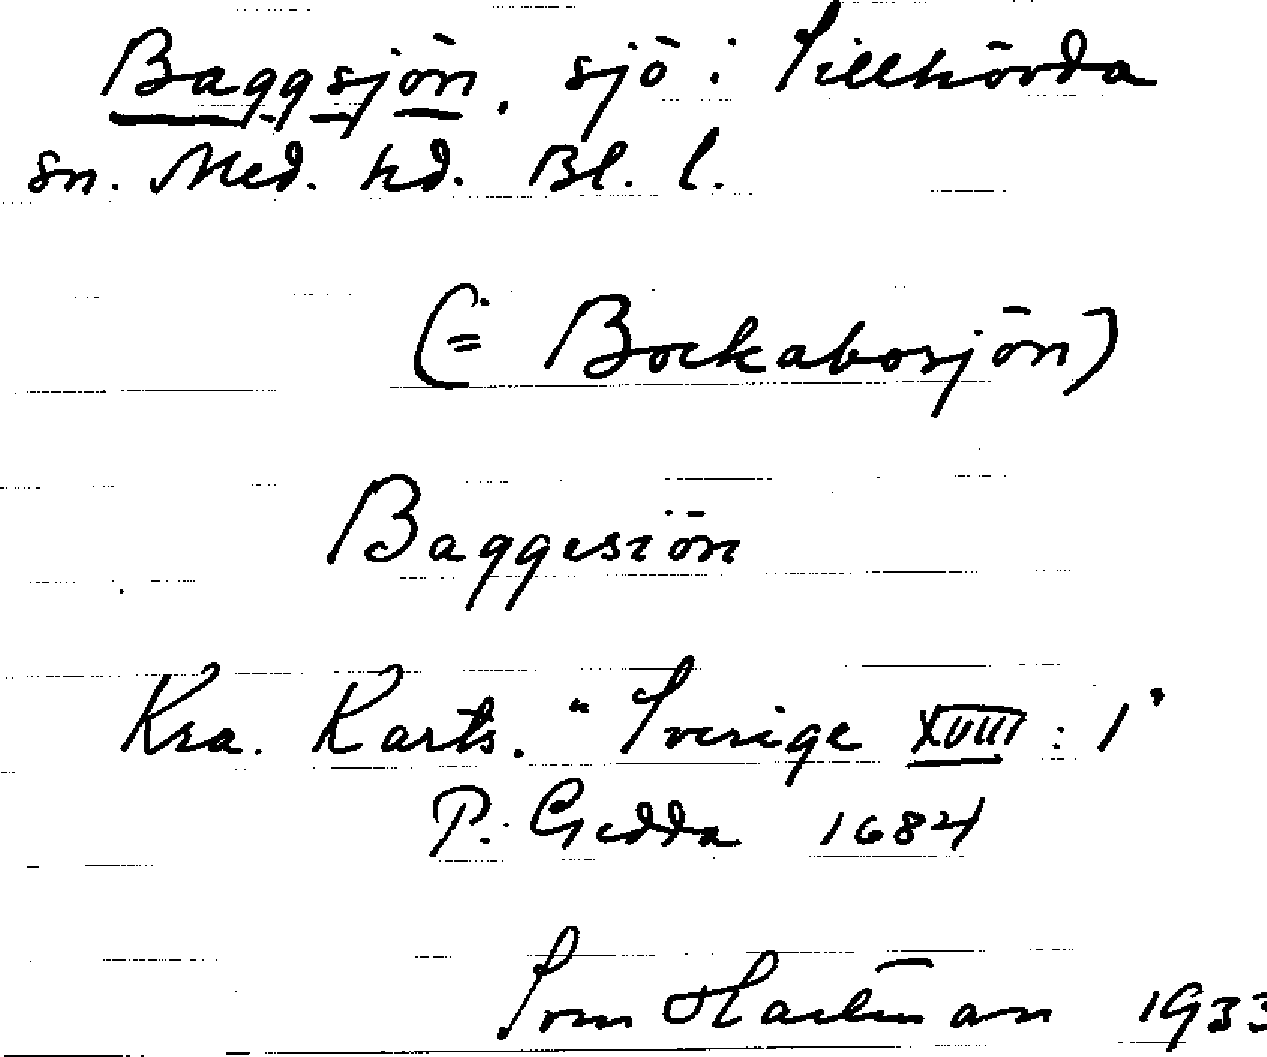 Baggsjön, sjö i Tillhörda
sn. Med. hd. Bl. l.
(= Bockabosjön)
Baggesiön
Kra. Karts. "Sverige XVIII : 1"
P. Gedda 1684
Sven Hartman 1933